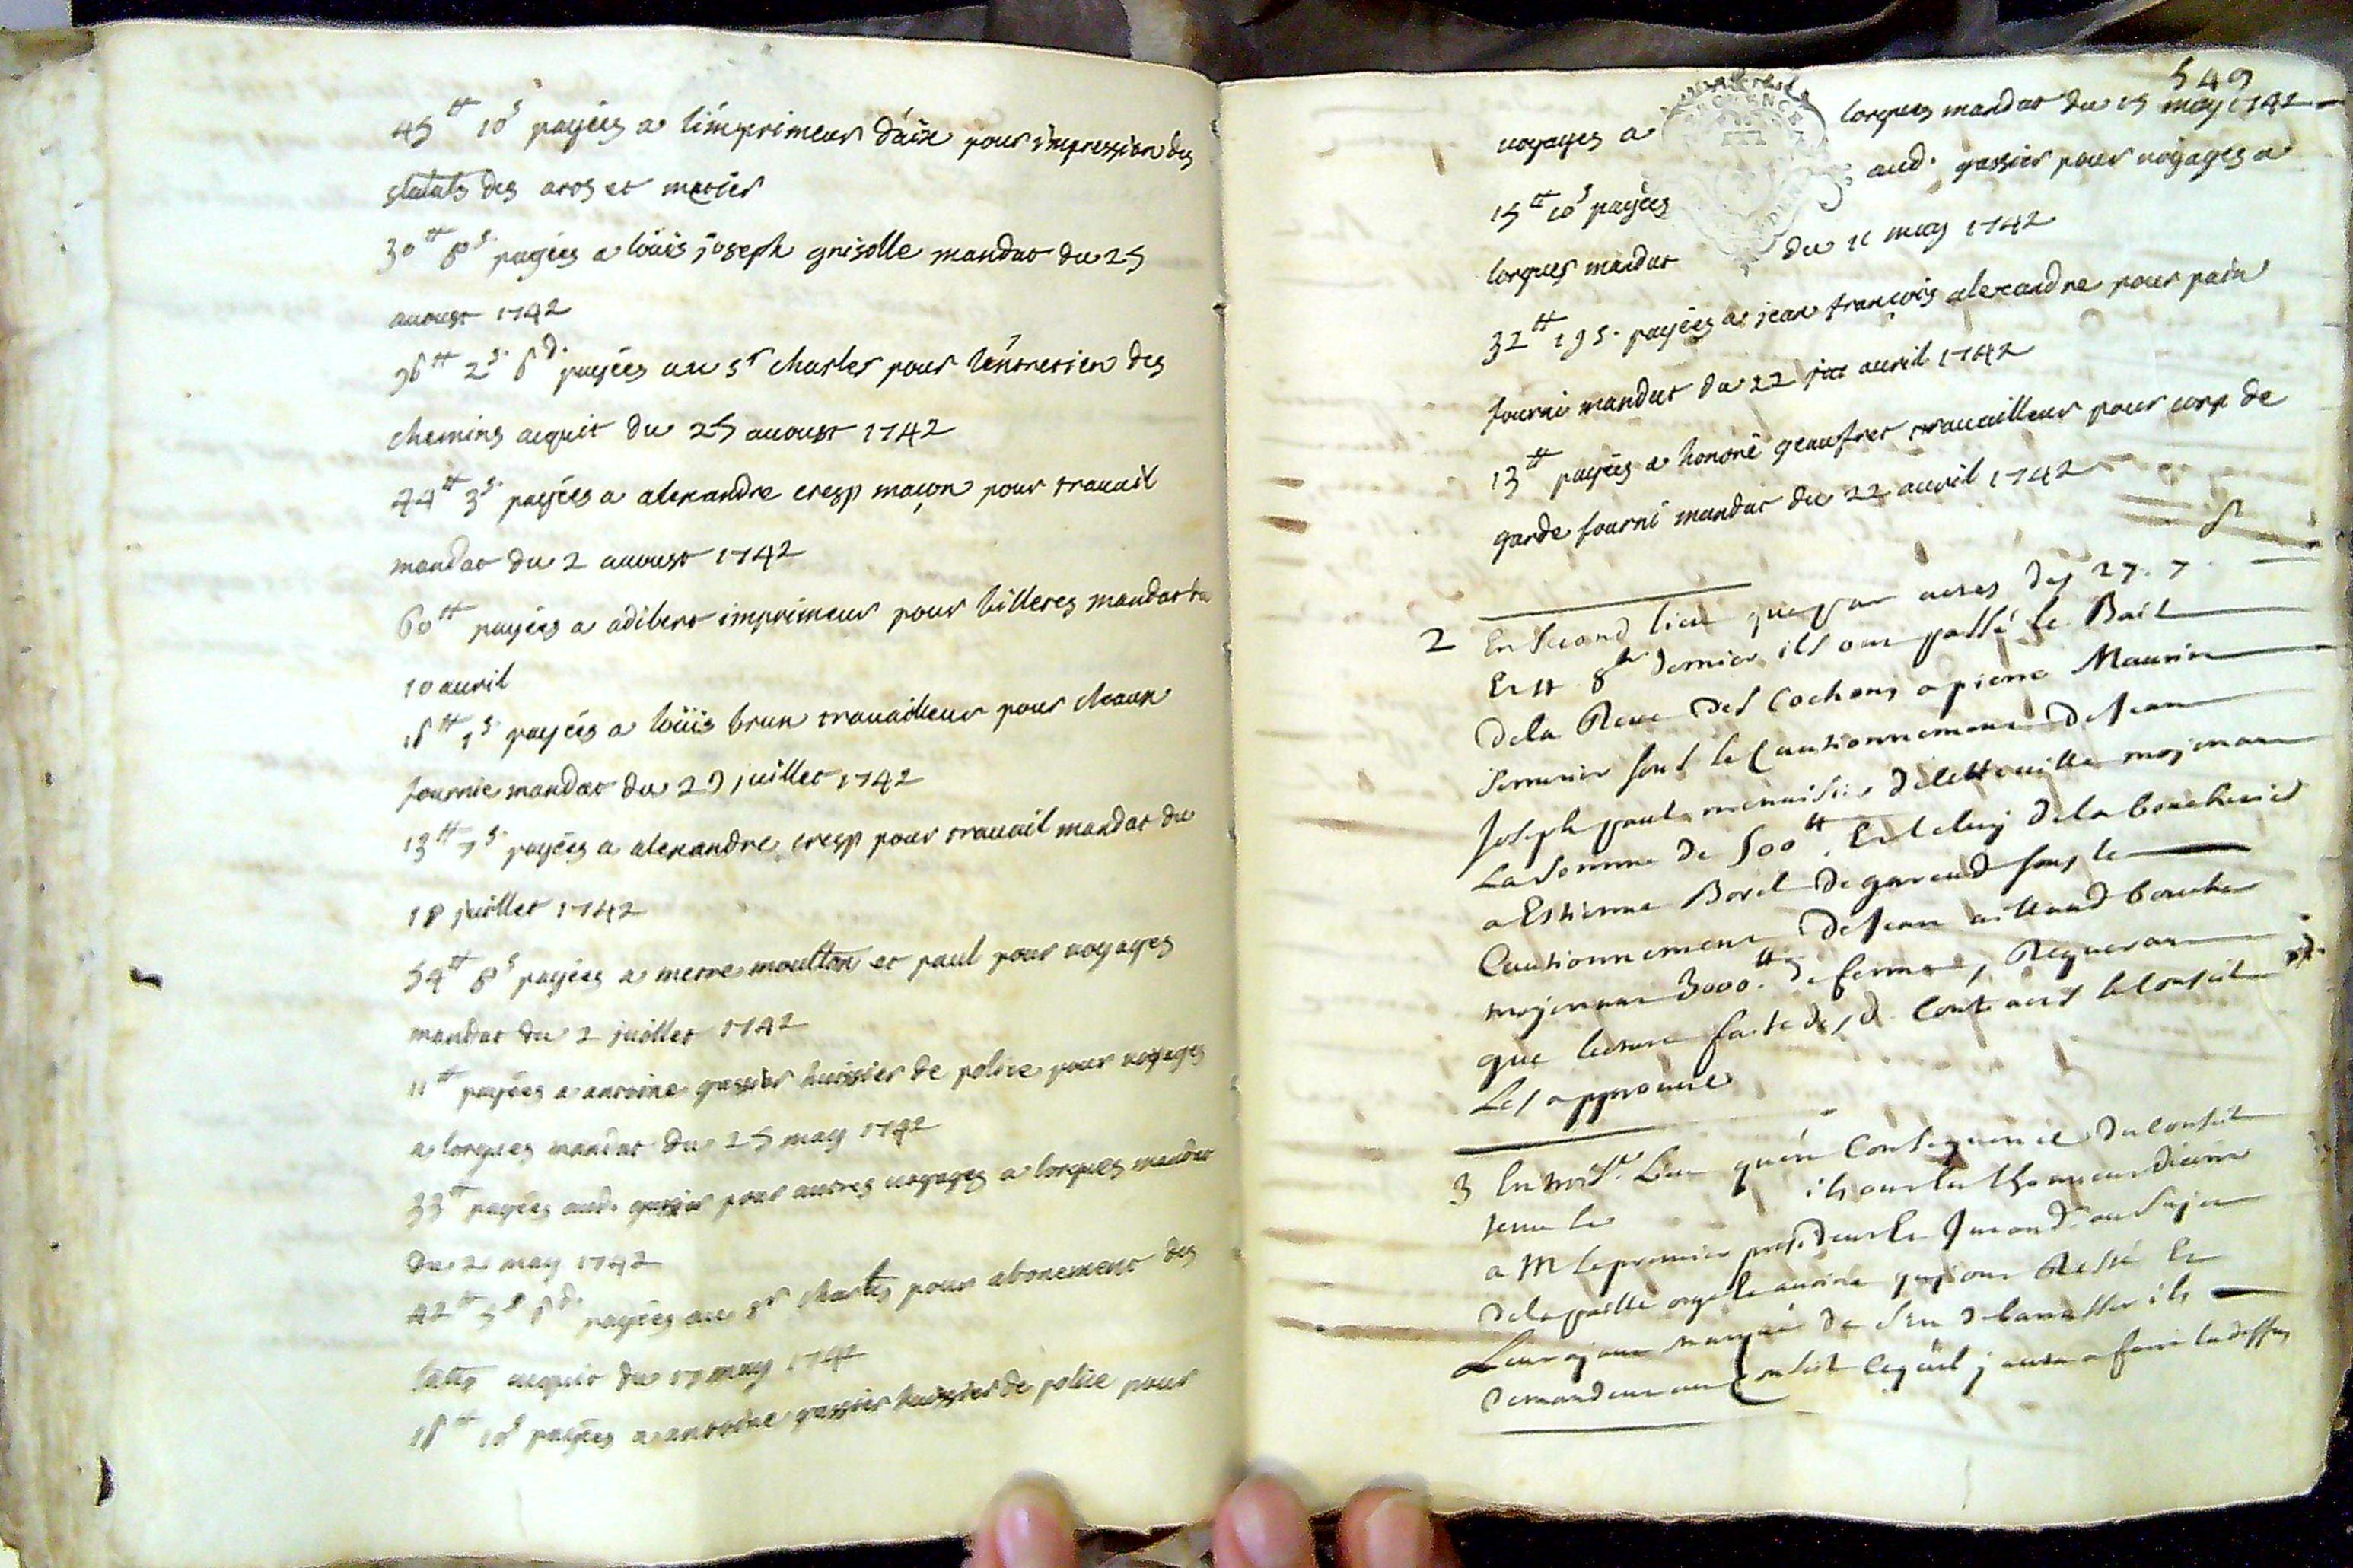 45 ₶ 10 s payées a l'imprimeur d'aix pour impression des
statuts des arts et metiers
30 ₶ 8 s. payées a loüis joseph grisolle mandat du 25
auoust 1742
₶ 2 s. 6 d. payées au sr charles pour l'entretien des
chemins acquit du 25 auoust 1742
44 ₶ 3 s. payées a alexandre cresp maçon pour trauail
mandat du 2 auoust 1742
60 ₶ payées a adibert imprimeur pour billetes mandat du
10 auril
₶ payées a loüis brun trauailleur pour chaux
fournie mandat du juillet 1742
13 ₶ 7 s. payées a alexandre cresp pour trauail mandat du
18 juillet 1742
54 ₶ 8 s payées a merre moutton et paul pour uoyages
mandat du 2 juillet 1742
11 ₶ payées a antoine gassier huissier de police pour uoyages
a lorgues mandat du 25 may 1742
33 ₶ payées aud. gassier pour autres uoyages a lorgues mandat
du may 1742
42 ₶ payées au sr charles pour abonement des
acquit du 17 may 1742
₶ 10 s payées a antoine gassier huissier de police pour
549
uoyages a lorgues mandat du 15 may 1742
15 ₶ 10 s payées aud. gassier pour uoyages a
lorgues mandat du 11 may 1742
32 ₶ 19 s. payées a jean françois alexandre pour pain
fourni mandat du 22 auril 1742
13 ₶ payées a honoré geaufret trauailleur pour corp de
garde fourni mandat du 22 auril 1742
2 En second lieu que par actes des 27. 7
Et 8bre dernier ils ont passé le Bail
de la Reue des Cochons a pierre Maurin
sous le Cautionnement de Jean
Joseph paul menuisier de cette uille mojenant
La somme de 500 ₶. Et celuy de la boucherie
a Estienne Borel de gareoud sous le
Cautionnement de Jean aillaud boucher
mojenant 3000 ₶ de ferme, Requerant
que lecture faite desd. Contracts le Conseil
Les approuue
3 En trois.e Lieu qu'en Consequence du Conseil
tenu le ils ont eu l'honneur d'ecrire
a M le premier president Et Intend.t au sujet
de la paille orge et auoine qui ont Resté Et
Leur ajant marqué de s'en debarrasser ils
demandent au Conseil ce qu'il j aura a faire la dessus